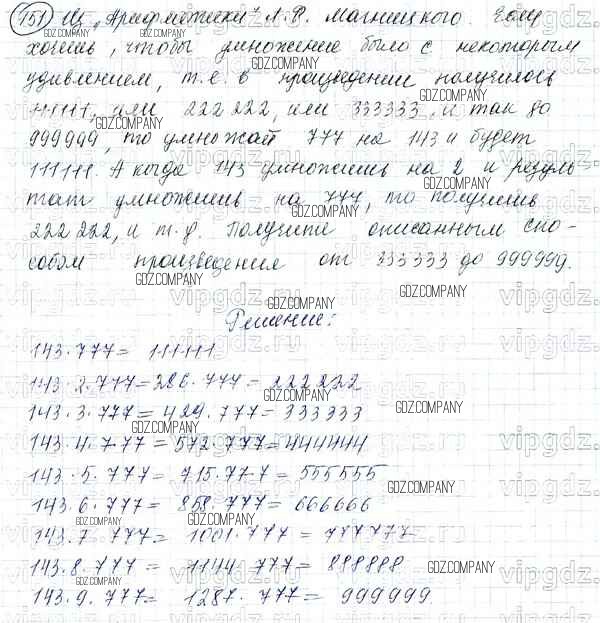 151) Из "Арифметики" Л. Ф. Магницкого. Если
хочешь, чтобы умножение было с некоторым
удивлением, т.е. в произведении получилось
111111, или 222 222, или 333333, и так до
999999, то умножай 777 на 143 и будет
111111. А когда 143 умножишь на 2 и резуль-
тат умножишь на 777, то получишь
222 222, и т.д. Получите описанным спо-
собом произведения от 333333 до 999999.
Решение:
143·777= 111111
143·2·777=286·777=222222
143·3·777=429·777=333333
143·4·777=572·777=444444
143·5·777= 715·777=555555
143·6·777= 858·777=666666
143·7·777= 1001·777=777777
143·8·777= 1144·777=888888
143·9·777= 1287·777=999999
GDZ.COMPANY
vipgdz.ru